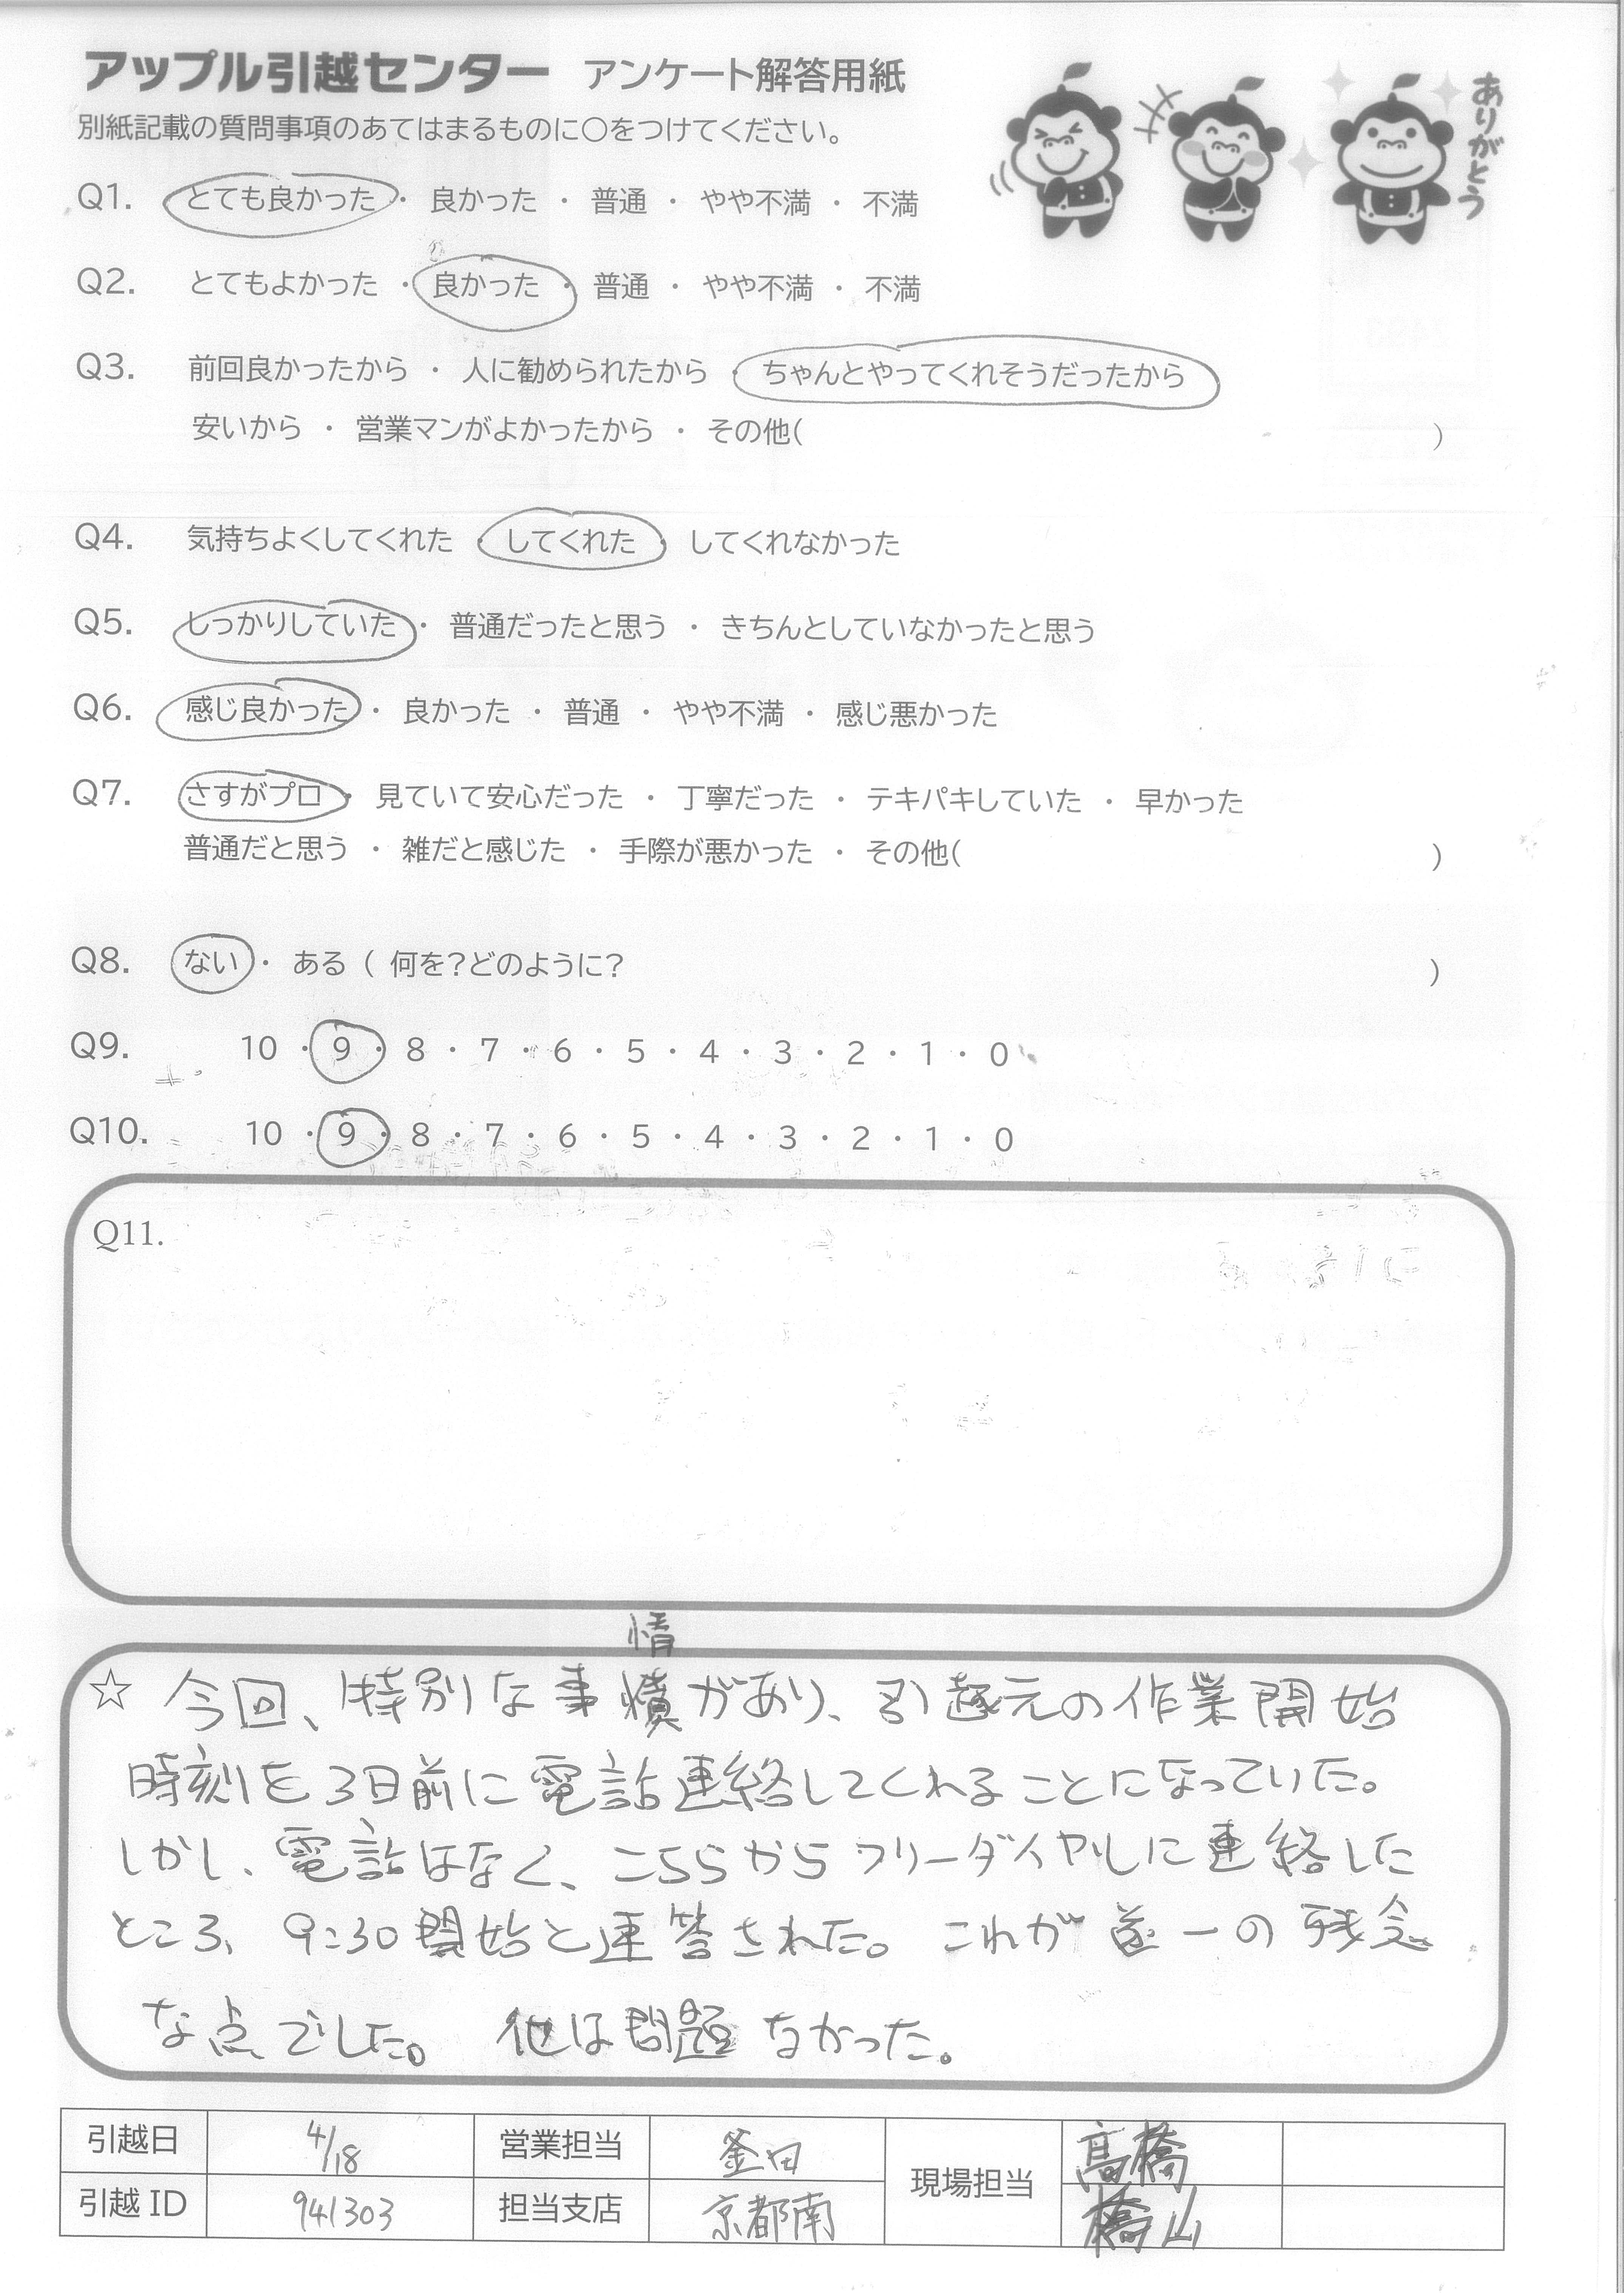 アップル引越センター アンケート解答用紙
別紙記載の質問事項のあてはまるものに○をつけてください。
ありがとう
Q1. とても良かった ・ 良かった ・ 普通 ・ やや不満 ・ 不満
Q2. とてもよかった ・ 良かった ・ 普通 ・ やや不満 ・ 不満
Q3. 前回良かったから ・ 人に勧められたから ・ ちゃんとやってくれそうだったから
安いから ・ 営業マンがよかったから ・ その他( )
Q4. 気持ちよくしてくれた ・ してくれた ・ してくれなかった
Q5. しっかりしていた ・ 普通だったと思う ・ きちんとしていなかったと思う
Q6. 感じ良かった ・ 良かった ・ 普通 ・ やや不満 ・ 感じ悪かった
Q7. さすがプロ ・ 見ていて安心だった ・ 丁寧だった ・ テキパキしていた ・ 早かった
普通だと思う ・ 雑だと感じた ・ 手際が悪かった ・ その他( )
Q8. ない ・ ある ( 何を?どのように? )
Q9. 10 ・ 9 ・ 8 ・ 7 ・ 6 ・ 5 ・ 4 ・ 3 ・ 2 ・ 1 ・ 0
Q10. 10 ・ 9 ・ 8 ・ 7 ・ 6 ・ 5 ・ 4 ・ 3 ・ 2 ・ 1 ・ 0
Q11.
情
☆ 今回、特別な事があり、引越元の作業開始
時刻を3日前に電話連絡してくれることになっていた。
しかし、電話はなく、こちらからフリーダイヤルに連絡した
ところ、9:30開始と返答された。これが唯一の残念
な点でした。 他は問題なかった。
引越日 4/18 営業担当 釜田 現場担当 高橋
引越 ID 941303 担当支店 京都南 橋山